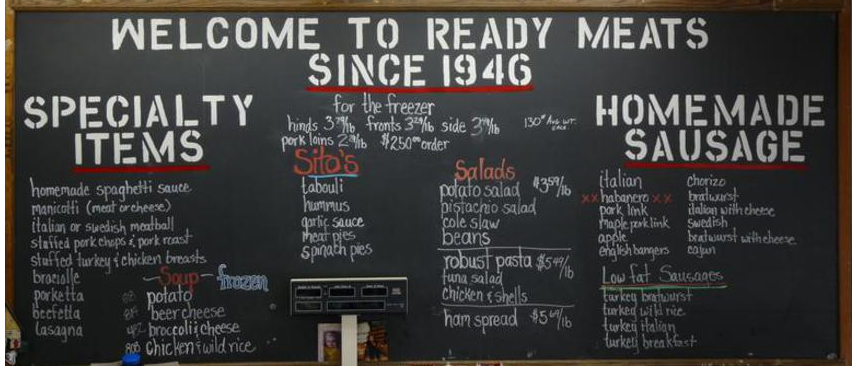 WELCOME TO READY MEATS
SINCE 1946
SPECIALTY
ITEMS
homemade spaghetti sauce
manicotti (meat or cheese)
italian or swedish meatball
stuffed pork chops & pork roast
stuffed turkey & chicken breasts
braciolle
porketta
beefetta
lasagna
Soup - frozen
potato
beer cheese
broccoli cheese
chicken & wild rice
for the freezer
hinds fronts side
pork loins $250.00 order
130# Avg. wt.
Sito's
tabouli
hummus
garlic sauce
meat pies
spinach pies
Salads
potato salad $3.59/lb
pistachio salad
cole slaw
beans
robust pasta $5.49/lb
tuna salad
chicken & shells
ham spread $5.69/lb
HOMEMADE
SAUSAGE
italian
xx habanero xx
pork link
maple pork link
apple
english bangers
chorizo
bratwurst
italian with cheese
swedish
bratwurst with cheese
cajun
Low fat Sausages
turkey bratwurst
turkey wild rice
turkey italian
turkey breakfast